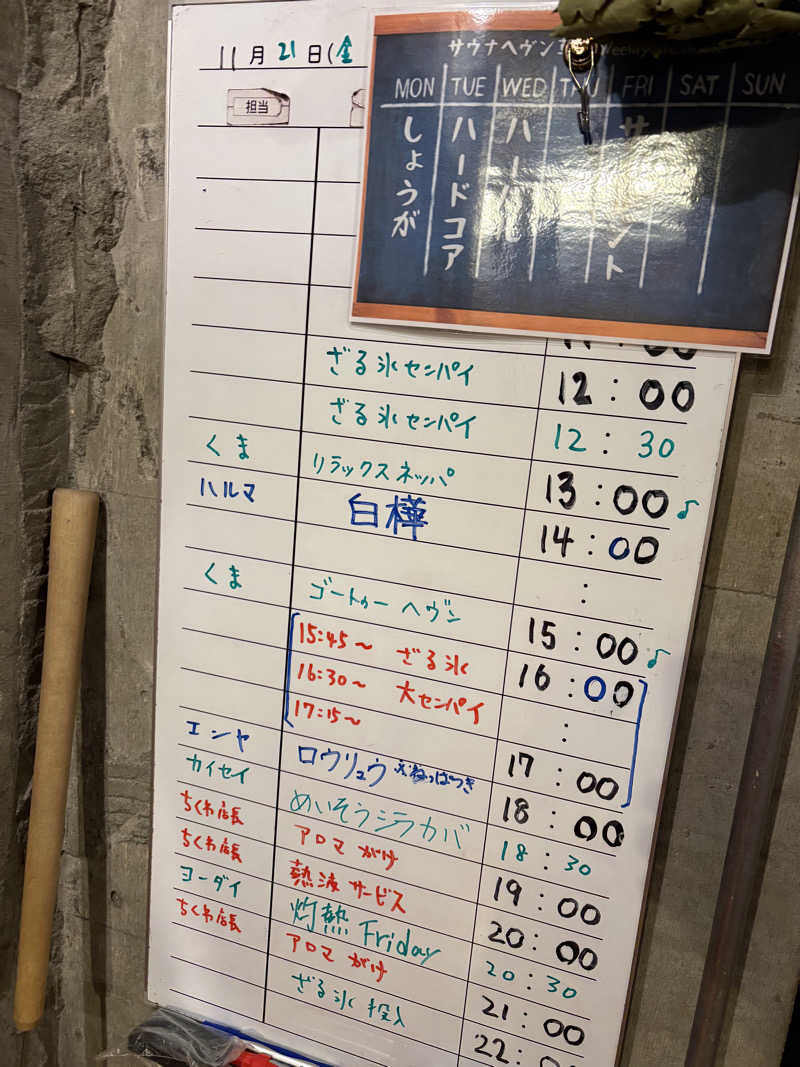 11月21日(金
サウナヘヴン
MON TUE WED THU FRI SAT SUN
しょうが
ハードコア
担当
ざる氷センパイ 12:00
ざる氷センパイ 12:30
くま リラックスネッパ 13:00♪
ハルマ 白樺 14:00
:
くま ゴートゥーヘヴン 15:00♪
15:45〜 ざる氷 16:00
16:30〜 大センパイ :
17:15〜 17:00
エンヤ ロウリュウ 18:00
カイセイ めいそうシラカバ 18:30
ちくわ店長 アロマがけ 19:00
ちくわ店長 熱波サービス 20:00
ヨーダイ 灼熱Friday 20:30
ちくわ店長 アロマがけ 21:00
ざる氷投入 22: